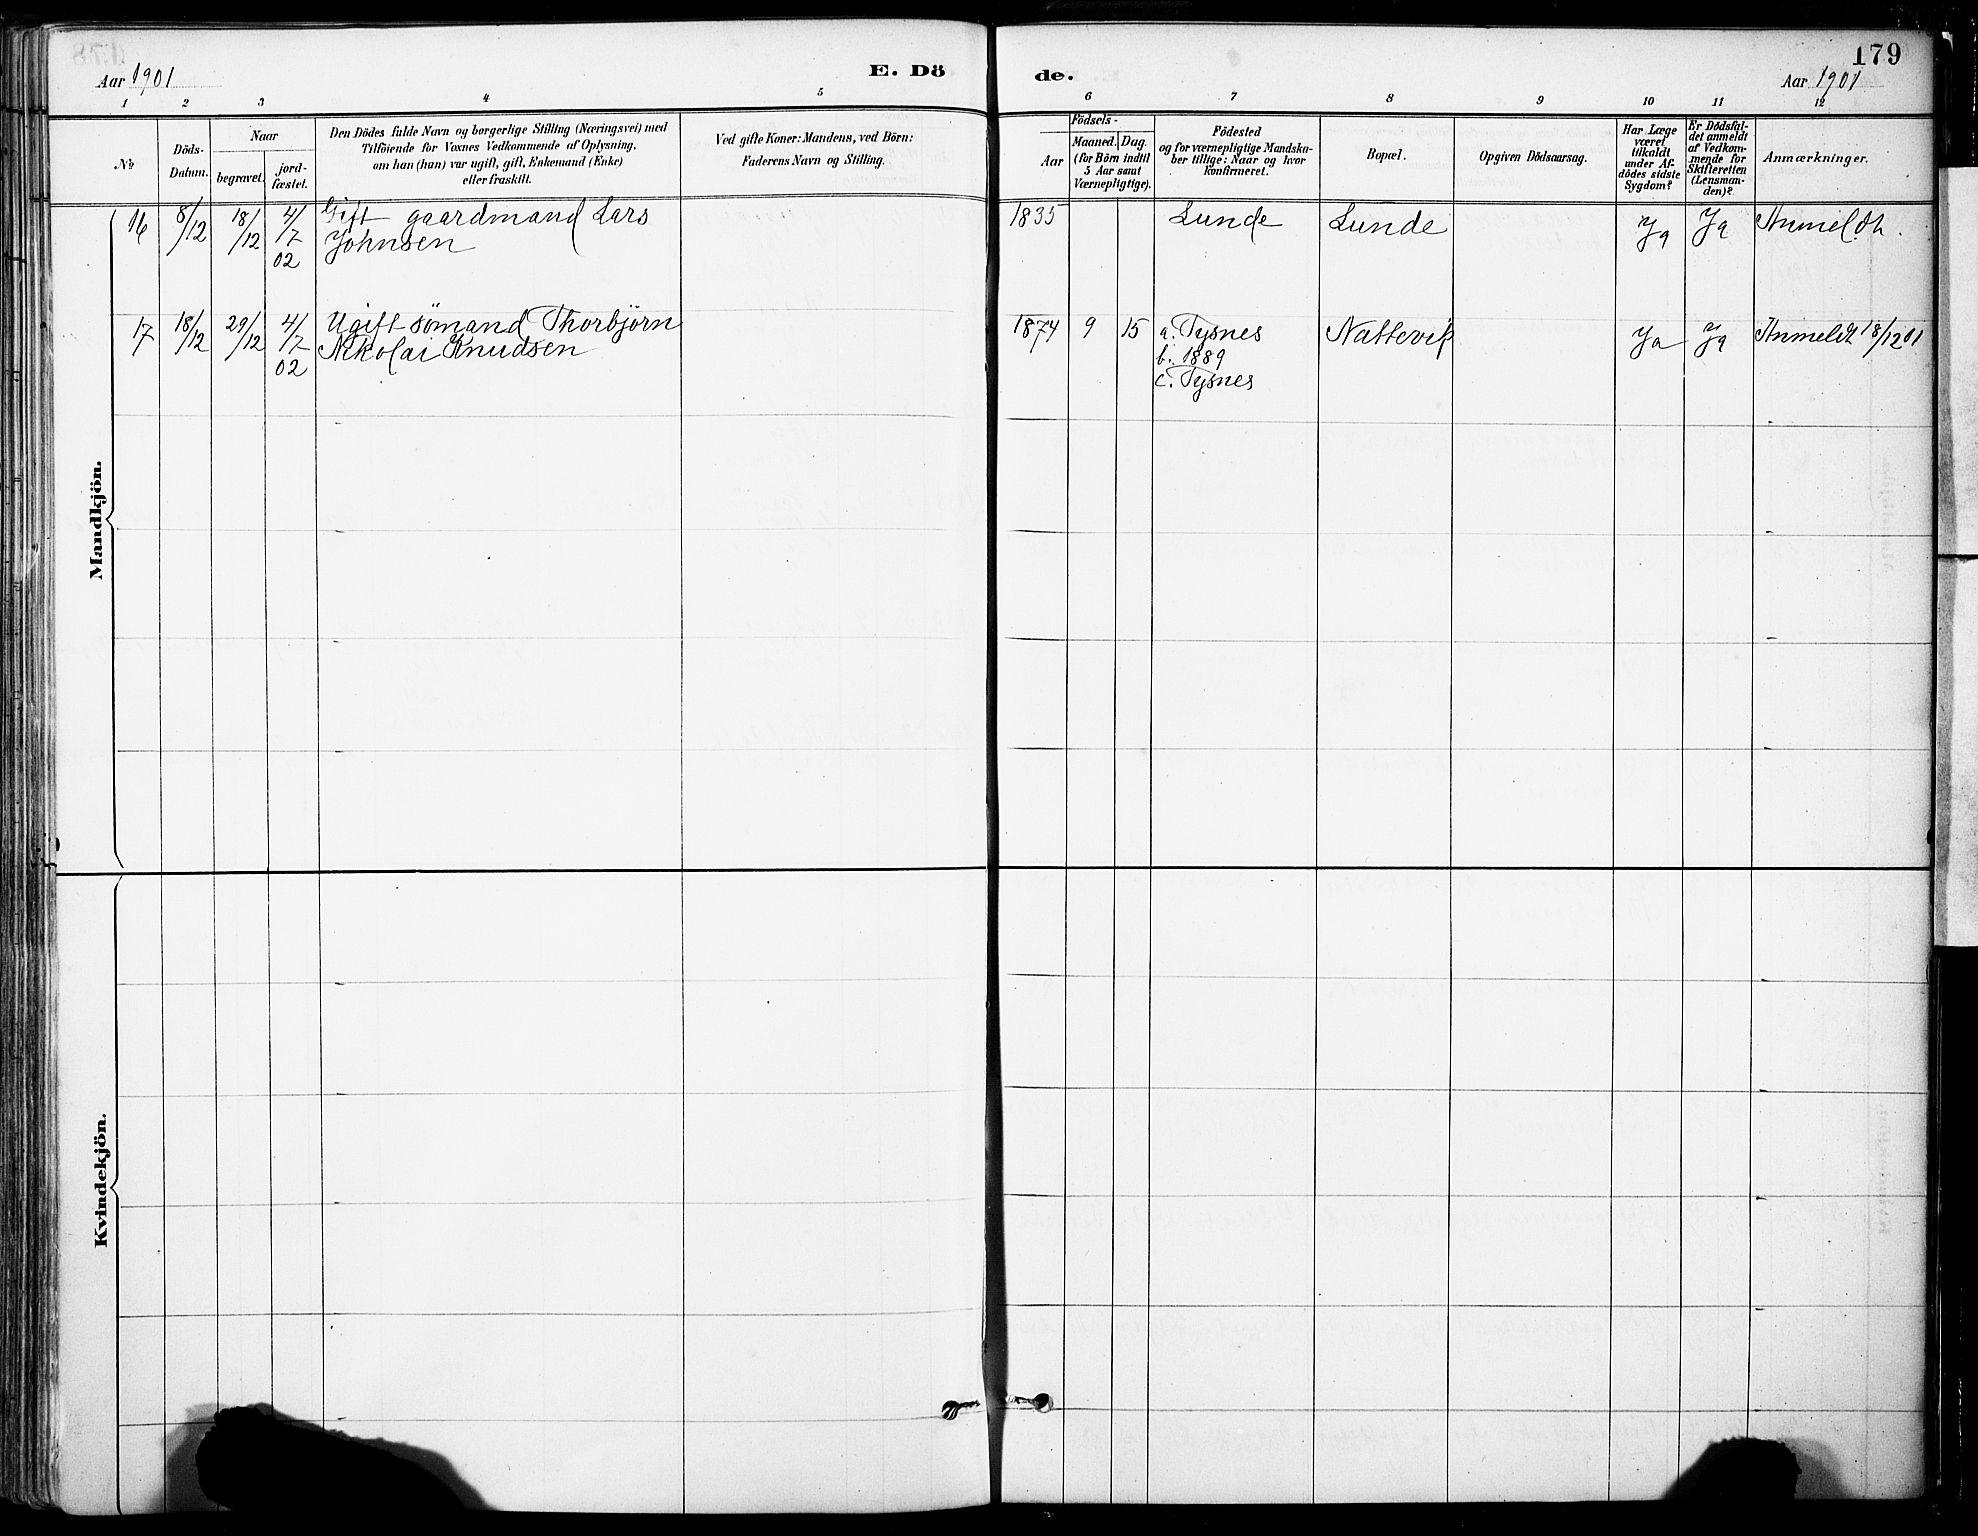 179
Aar 1901
E. Dö
de.
Aar 1901
1 2 3 4 5 6 7 8 9 10 11 12
No
Döds-
Datum.
Naar
begravet.
jord-
fæstet.
Den Dödes fulde Navn og borgerlige Stilling (Næringsvei) med
Tilföiende for Voxnes Vedkommende af Oplysning,
om han (hun) var ugift, gift, Enkemand (Enke)
eller fraskilt.
Ved gifte Koner: Mandens, ved Börn:
Faderens Navn og Stilling.
Födsels-
Aar
Maaned. Dag.
(for Börn indtil
5 Aar samt
Værnepligtige).
Födested
og for værnepligtige Mandska-
ber tillige: Naar og hvor
konfirmeret.
Bopæl.
Opgiven Dödsaarsag.
Har Læge
været
tilkaldt
under Af-
dödes sidste
Sygdom?
Er Dödsfal-
det anmeldt
af Vedkom-
mende for
Skifteretten
(Lensman-
den)?
Anmærkninger.
Mandkjön.
16 8/12 18/12 4/7 02 Gift gaardmand Lars
Johnsen
1835 Lunde Lunde Ja Ja
17 18/12 29/12 4/7 02 Ugift sömand Thorbjörn
Nikolai Knudsen
1874 9 15 a. Tysnes Nattevik Ja Ja Anmeldt 18/12 01
b. 1889
c. Tysnes
Kvindekjön.